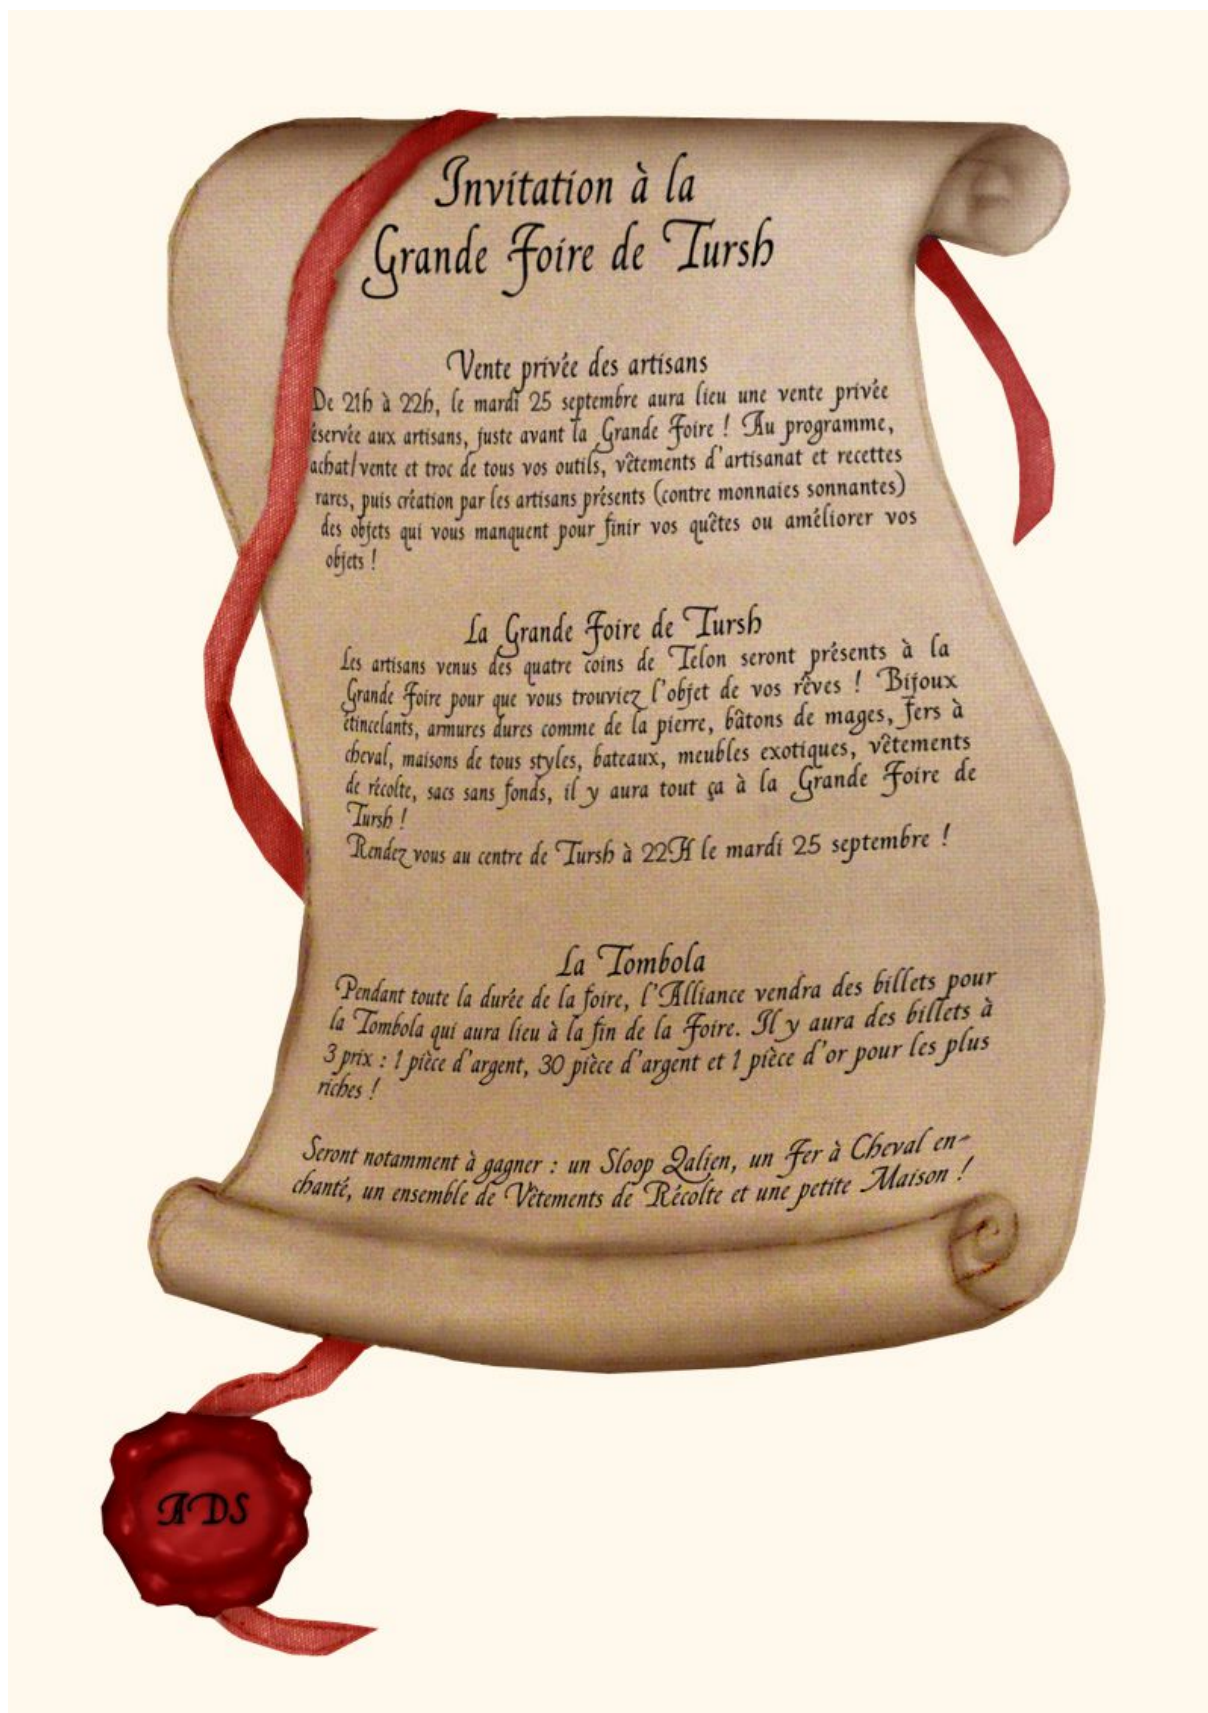 Invitation à la
Grande Foire de Tursh
Vente privée des artisans
De 21h à 22h, le mardi 25 septembre aura lieu une vente privée
éservée aux artisans, juste avant la Grande Foire ! Au programme,
achat/vente et troc de tous vos outils, vêtements d'artisanat et recettes
rares, puis création par les artisans présents (contre monnaies sonnantes)
des objets qui vous manquent pour finir vos quêtes ou améliorer vos
objets !
La Grande Foire de Tursh
Les artisans venus des quatre coins de Telon seront présents à la
Grande Foire pour que vous trouviez l'objet de vos rêves ! Bijoux
étincelants, armures dures comme de la pierre, bâtons de mages, Fers à
cheval, maisons de tous styles, bateaux, meubles exotiques, vêtements
de récolte, sacs sans fonds, il y aura tout ça à la Grande Foire de
Tursh !
Rendez vous au centre de Tursh à 22H le mardi 25 septembre !
La Tombola
Pendant toute la durée de la foire, l'Alliance vendra des billets pour
la Tombola qui aura lieu à la fin de la Foire. Il y aura des billets à
3 prix : 1 pièce d'argent, 30 pièce d'argent et 1 pièce d'or pour les plus
riches !
Seront notamment à gagner : un Sloop Qalien, un Fer à Cheval en-
chanté, un ensemble de Vêtements de Récolte et une petite Maison !
ADS